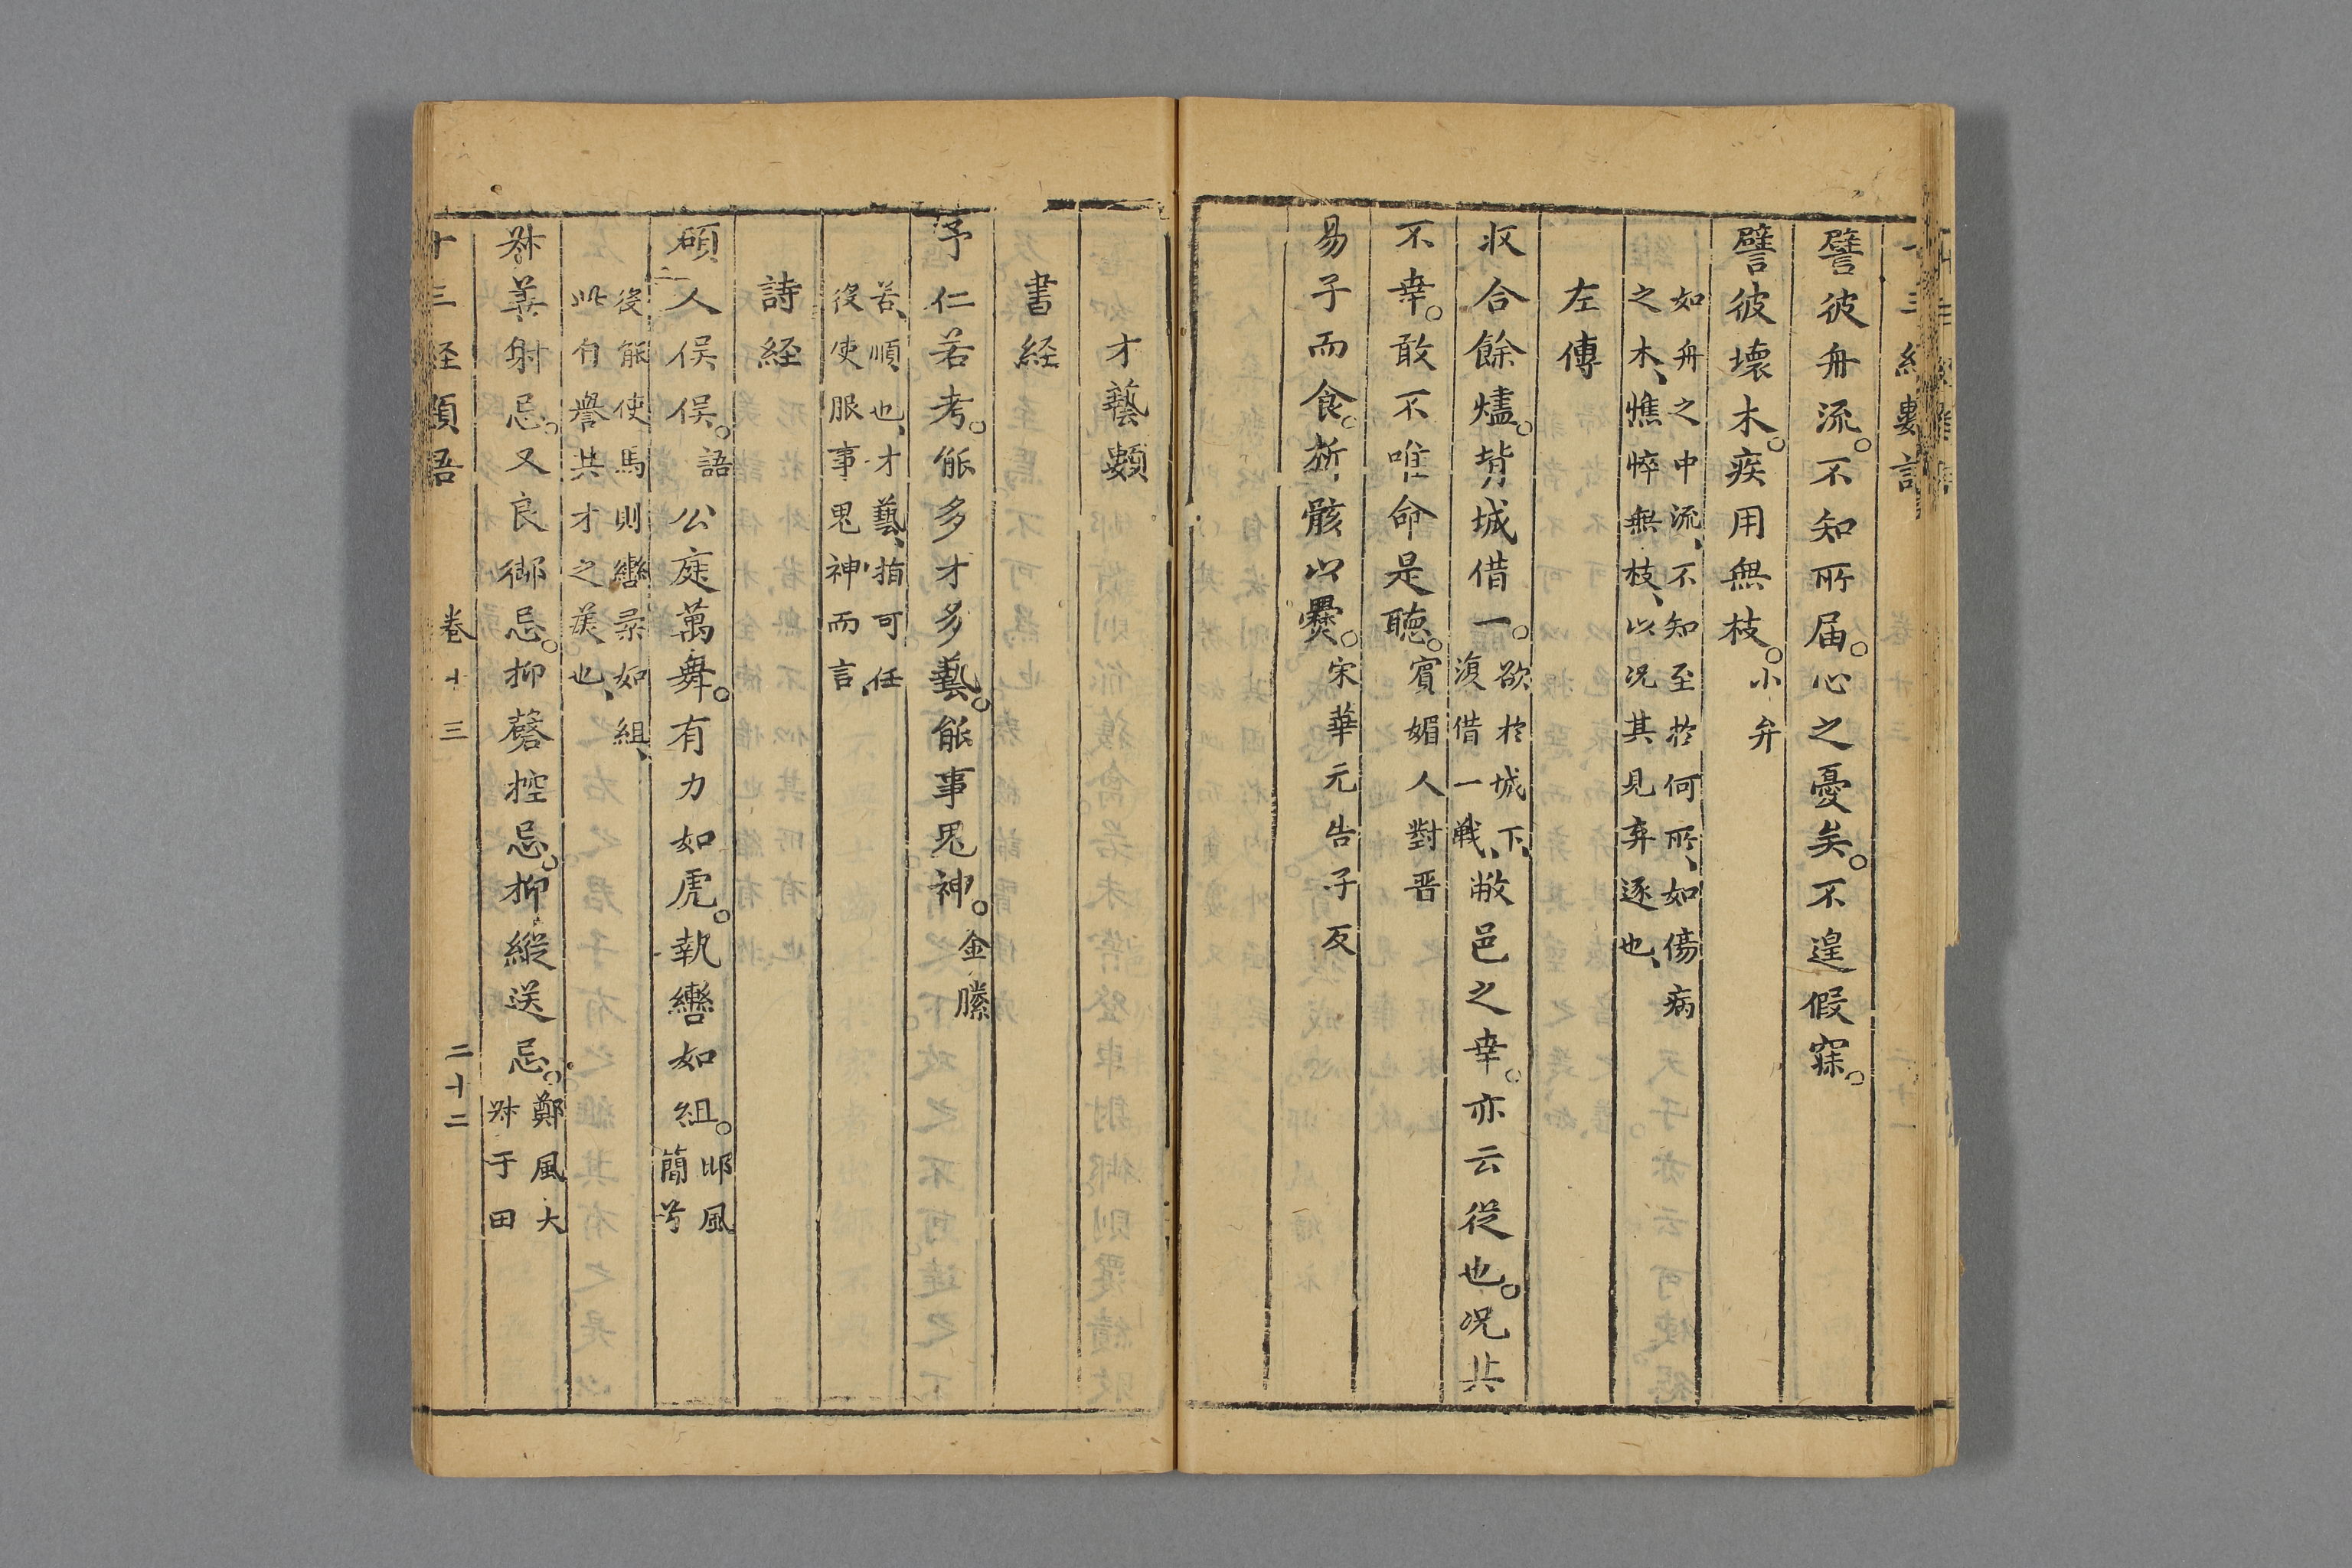 譬彼舟流。不知所届。心之憂矣。不遑假寐。
譬彼壞木。疾用無枝。小弁
如舟之中流、不知至於何所、如傷病
之木、憔悴無枝、以况其見弃逐也、
左傳
収合餘燼。背城借一。欲於城下、
復借一戰、敝邑之幸。亦云從也。况其
不幸。敢不唯命是聽。賓媚人對晋
易子而食。析骸以爨。宋華元告子反
才藝類
書經
予仁若考。能多才多藝。能事鬼神。金縢
若、順也、才藝、指可任
役使服事鬼神而言、
詩経
碩人俣俣。公庭萬舞。有力如虎。執轡如組。邶風
簡兮
後能使馬則轡柔如組、
此自譽其才之美也、
叔善射忌。又良御忌。抑磬控忌。抑縱送忌。鄭風大
叔于田
十三経類語 卷十三 二十二